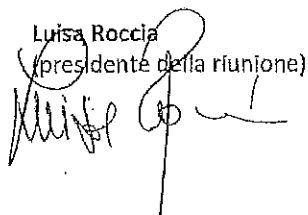 Luisa Roccia
(presidente della riunione)